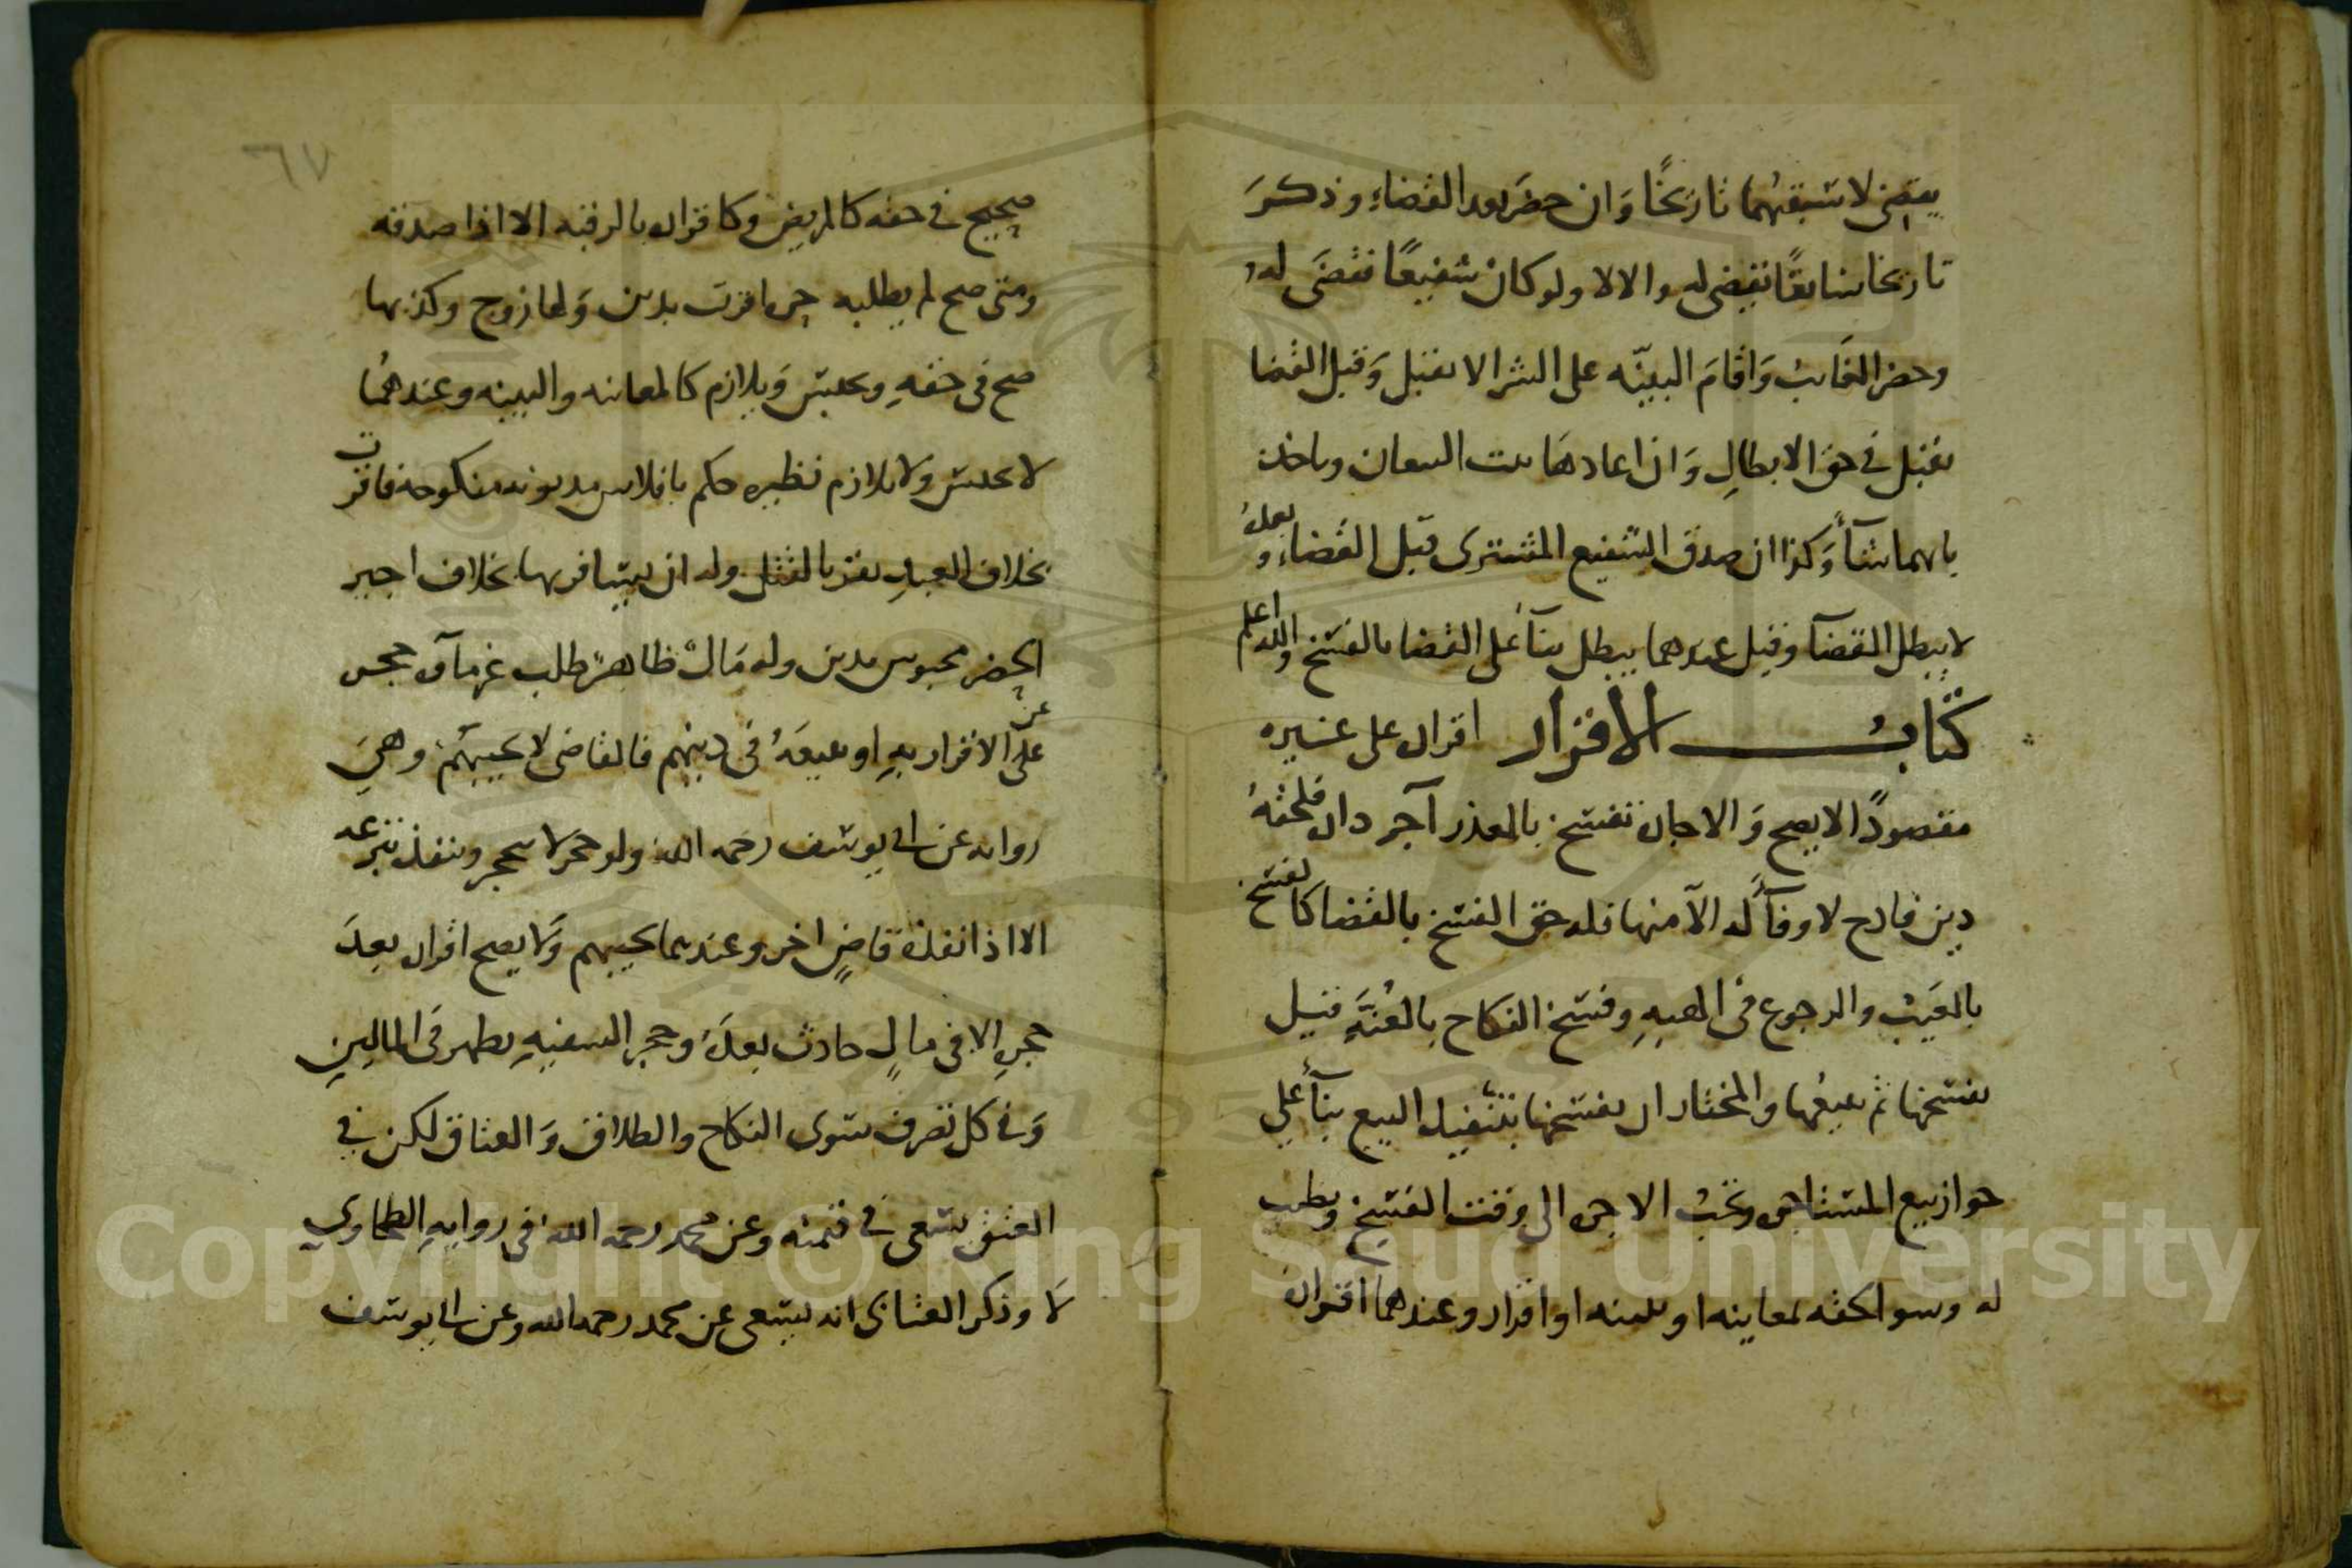 يقضى لاسبقهما تاريخًا وَان حضَر بعد القضاءِ وذكرَ
تاريخا سابقًا نقضى له والا لا ولو كان شفيعًا فقضَى له
وحضر الغَائب وَاقامَ البينّه على الشرا لا تقبل وَقبل القضا
تقبل في حق الابطالِ وَان اعادهَا بيت البيعان وياخذ
بايهما شآءَ وَكذا ان صدق الشفيع المشترى قبل القضاءِ وبعدهُ
لا يبطل القضآ وقيل عندهما يبطل بنآءً على القضا بالفسخ والله اعلم
كتابُ الاقرار اقراره على غيره
مقصودًا لا يصح وَالاجاره تفسخ بالعذر آجر داره فلحقهُ
دين فادح لا وفآءَ له الآ منها فله حق الفسخ بالقضا كالفسخ
بالعَيب والرجوع فى الهبهِ وفسخ النكاح بالعُنَّةِ قيل
يفسخها ثم يبيعُها والمختار ان يفسخها بتنفيذ البيع بنآءً على
جواز بيع المستاجر وَتجبُ الاجره الى وقت الفسخ وتطيب
له وسوا لحقه بمعاينه او ببينه او اقرار وعندهما اقراره
٦٧
صحيح في حقه كالمريض وكاقراره بالرقبه الا اذا صدقه
ومتى صح لم يطلبه حره اقرت بدين وَلها زوج وكذبها
صح فى حقهِ وتحبس وَيلازم كالمعاينه والبينه وعندهمُا
لا تحبس ولا تلازم نظيره حكم بافلاس مديونه منكوحه فاقرت
بخلاف العبدِ يقر بالقتل وله ان يسافر بها بخلاف اجير
الحضر محبوس بدين وله مَال ظاهر طلب غرمآؤه حجره
عن الاقرار بهِ او بيعَهُ فى دينهم فالقاضى لا يجيبهُم وَهي
روايه عن ابي يوسف رحمه الله ولو حجر لا ينحجر وينفذ تبرعه
الا اذا نفذه قاضٍ اخر وعندهما يجيبهم وَلا يصح اقراره بعدَ
حجرهِ الا فى مالٍ حادث بعدَهُ وحجر السفيهِ يظهر فَى المالينِ
وَفي كل تصرف سوى النكاح والطلاق وَالعتاق لكن في
العتق يسعى في قيمته وعن محمد رحمه الله فى روايهِ الطحاوي
لَا وذكر العتابى انه يسعى عن محمد رحمه الله وعن ابي يوسف
Copyright © King Saud University